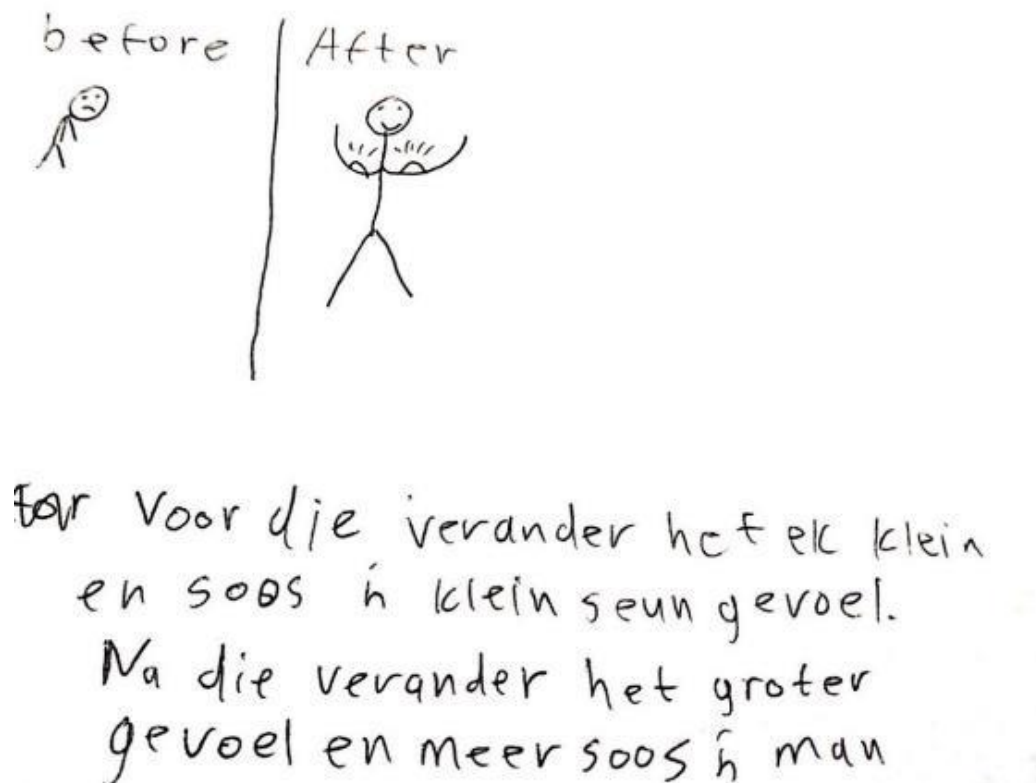 before After
Voor die verander het ek klein
en soos 'n klein seun gevoel.
Na die verander het groter
gevoel en meer soos 'n man